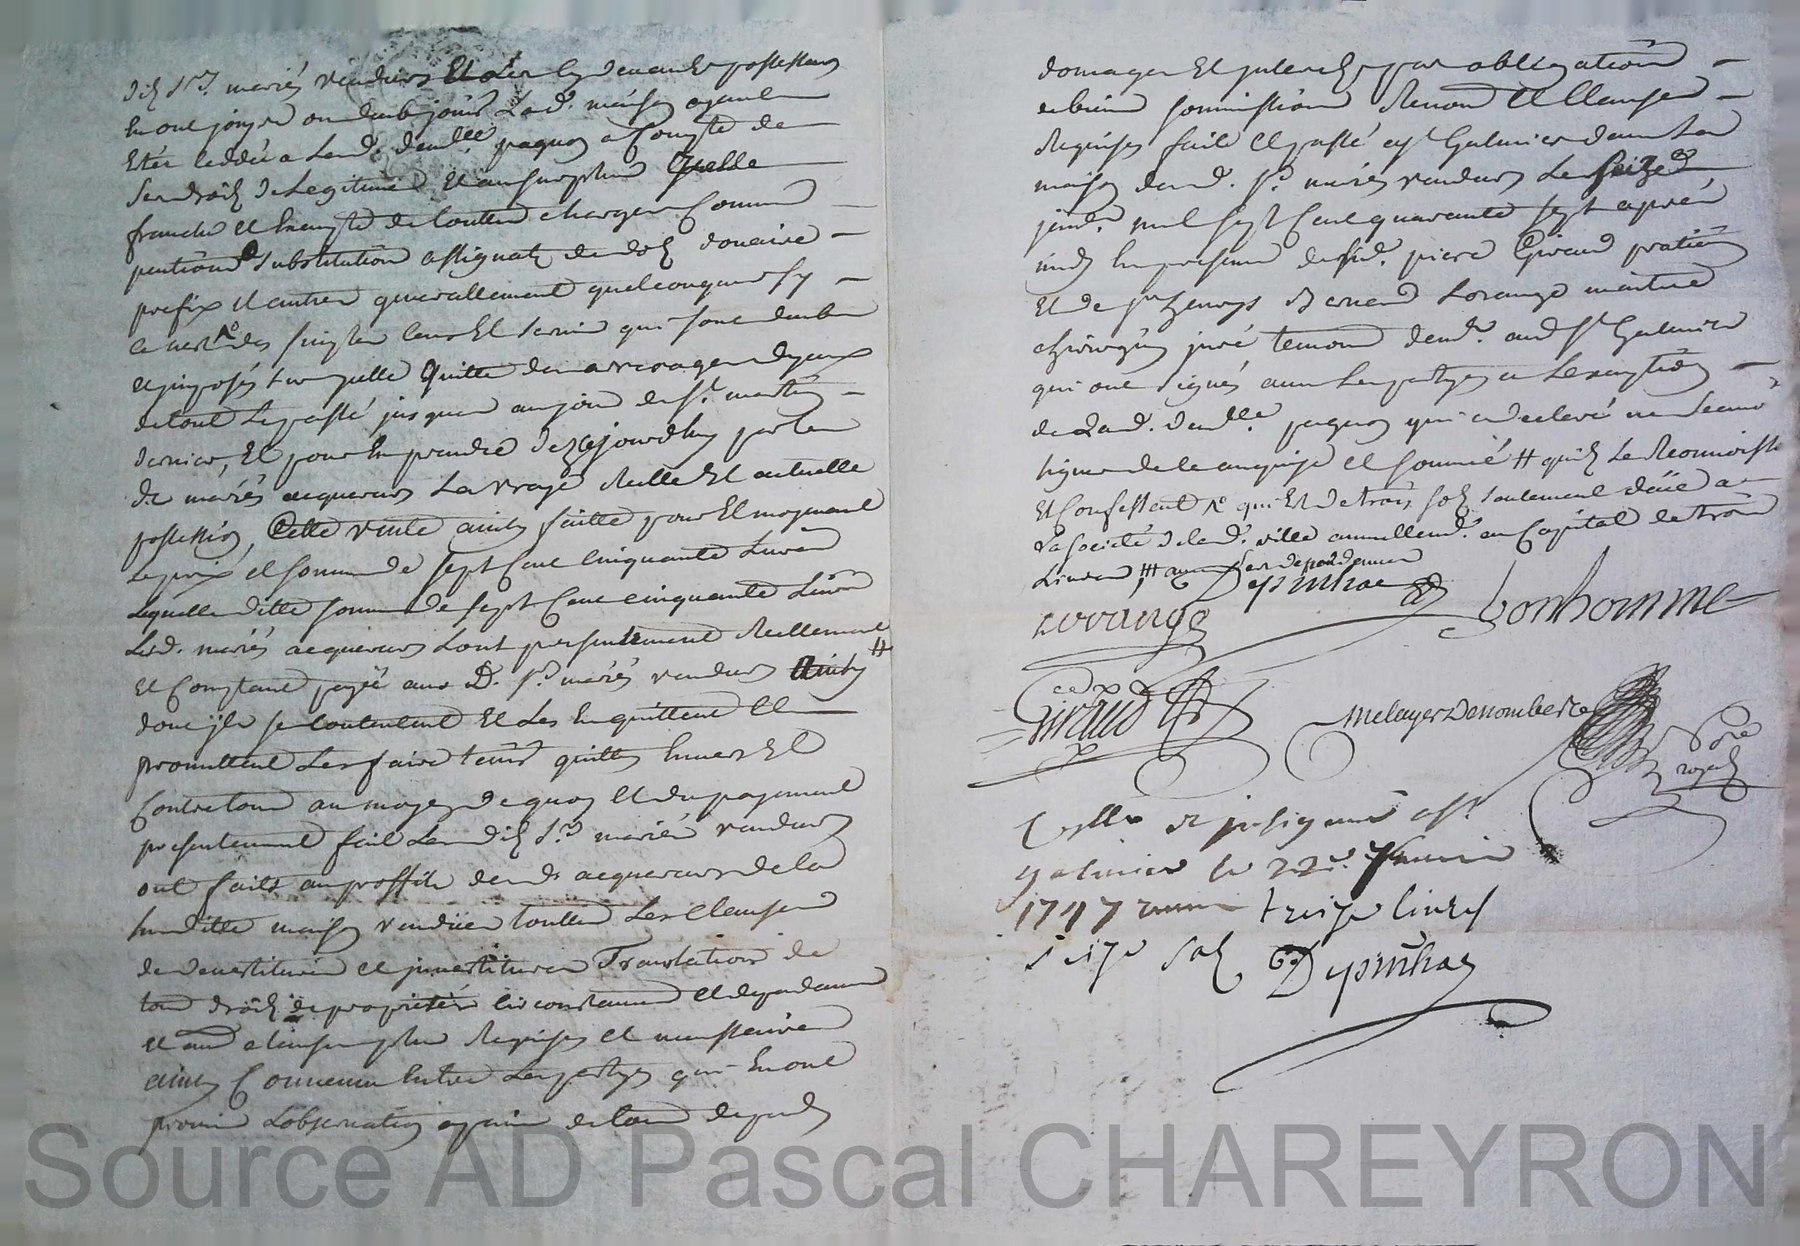 dits Srs. mariés vendeurs et les cy devant possesseurs
en ont jouy ou deub jouir lad. maison ayant
Eté ceddée a lad. demlle. paquon a Compte de
Ses droits de Legitime Et au surplus quelle
franche et Exempte de touttes charges Comme
pentions substitution assignats de dot douaire
prefix et autres generallement quelconques sy
ce nest des simples cens Et servis qui sont deubs
et imposés sur ycelle quitte des arreyrages dyceux
de tout le passé jusques au jour de St. martin
dernier, Et pour En prendre dez ce jourdhuy par les
d. mariés acquereurs La vraye Reelle Et actuelle
possession, Cette vente ainsy faitte pour Et moyenant
Le prix et somme de sept Cent cinquante Livres
Laquelle ditte somme de sept Cent cinquante Livres
Lesd. mariés acquereurs L'ont presentement Reellement
Et Comptant payée aux d. Srs. mariés vendeurs #
dont ils se contentent Et Les En quittent Et
promettent Les faire tenir quittes Envers Et
Contre tous au moyen de quoy Et du payement
presentement fait Lesdits Srs. mariés vendeurs
ont faits au proffit desd. acquereurs de la
susditte maison vendüe touttes Les Clauses
de devestiture et investiture Translation de
tous droits de proprieté circonstances et dependances
et autres clauses plus Requises et necessaires
ainsy Convenu Entre Les partyes qui En ont
promis L'observation a peine de tous depends
domages Et interets par obligation
de biens soumissions Renon. et Clauses
Requises fait et passé a St Galmier dans La
maison desd. Srs. mariés vendeurs Le seize
janvr. mil sept Cent quarante sept apres
midy En presence de sieur. piere Giraud pratitien
Et de Sr. bernard Lorange maitre
chirurgien juré temoins demt. aud. St. Galmier
qui ont signés avec Les partyes a L'exception
de Lad. demlle. paquon qui a declaré ne sçavoir
signer de ce enquise et sommé # quils Le Reconnoissent
Et Confessent qui Est de trois sols seulement düe a
La societé de lad. ville annuellemt. au Capital de trois
Livres
Depinhac bonhomme
Lorange
Giraud melayer Denomberte
Nore royal
Collé et insigniné a St
galmier le 22e janvier
1747 treize livres
seize sols Depinhac
Source AD Pascal CHAREYRON